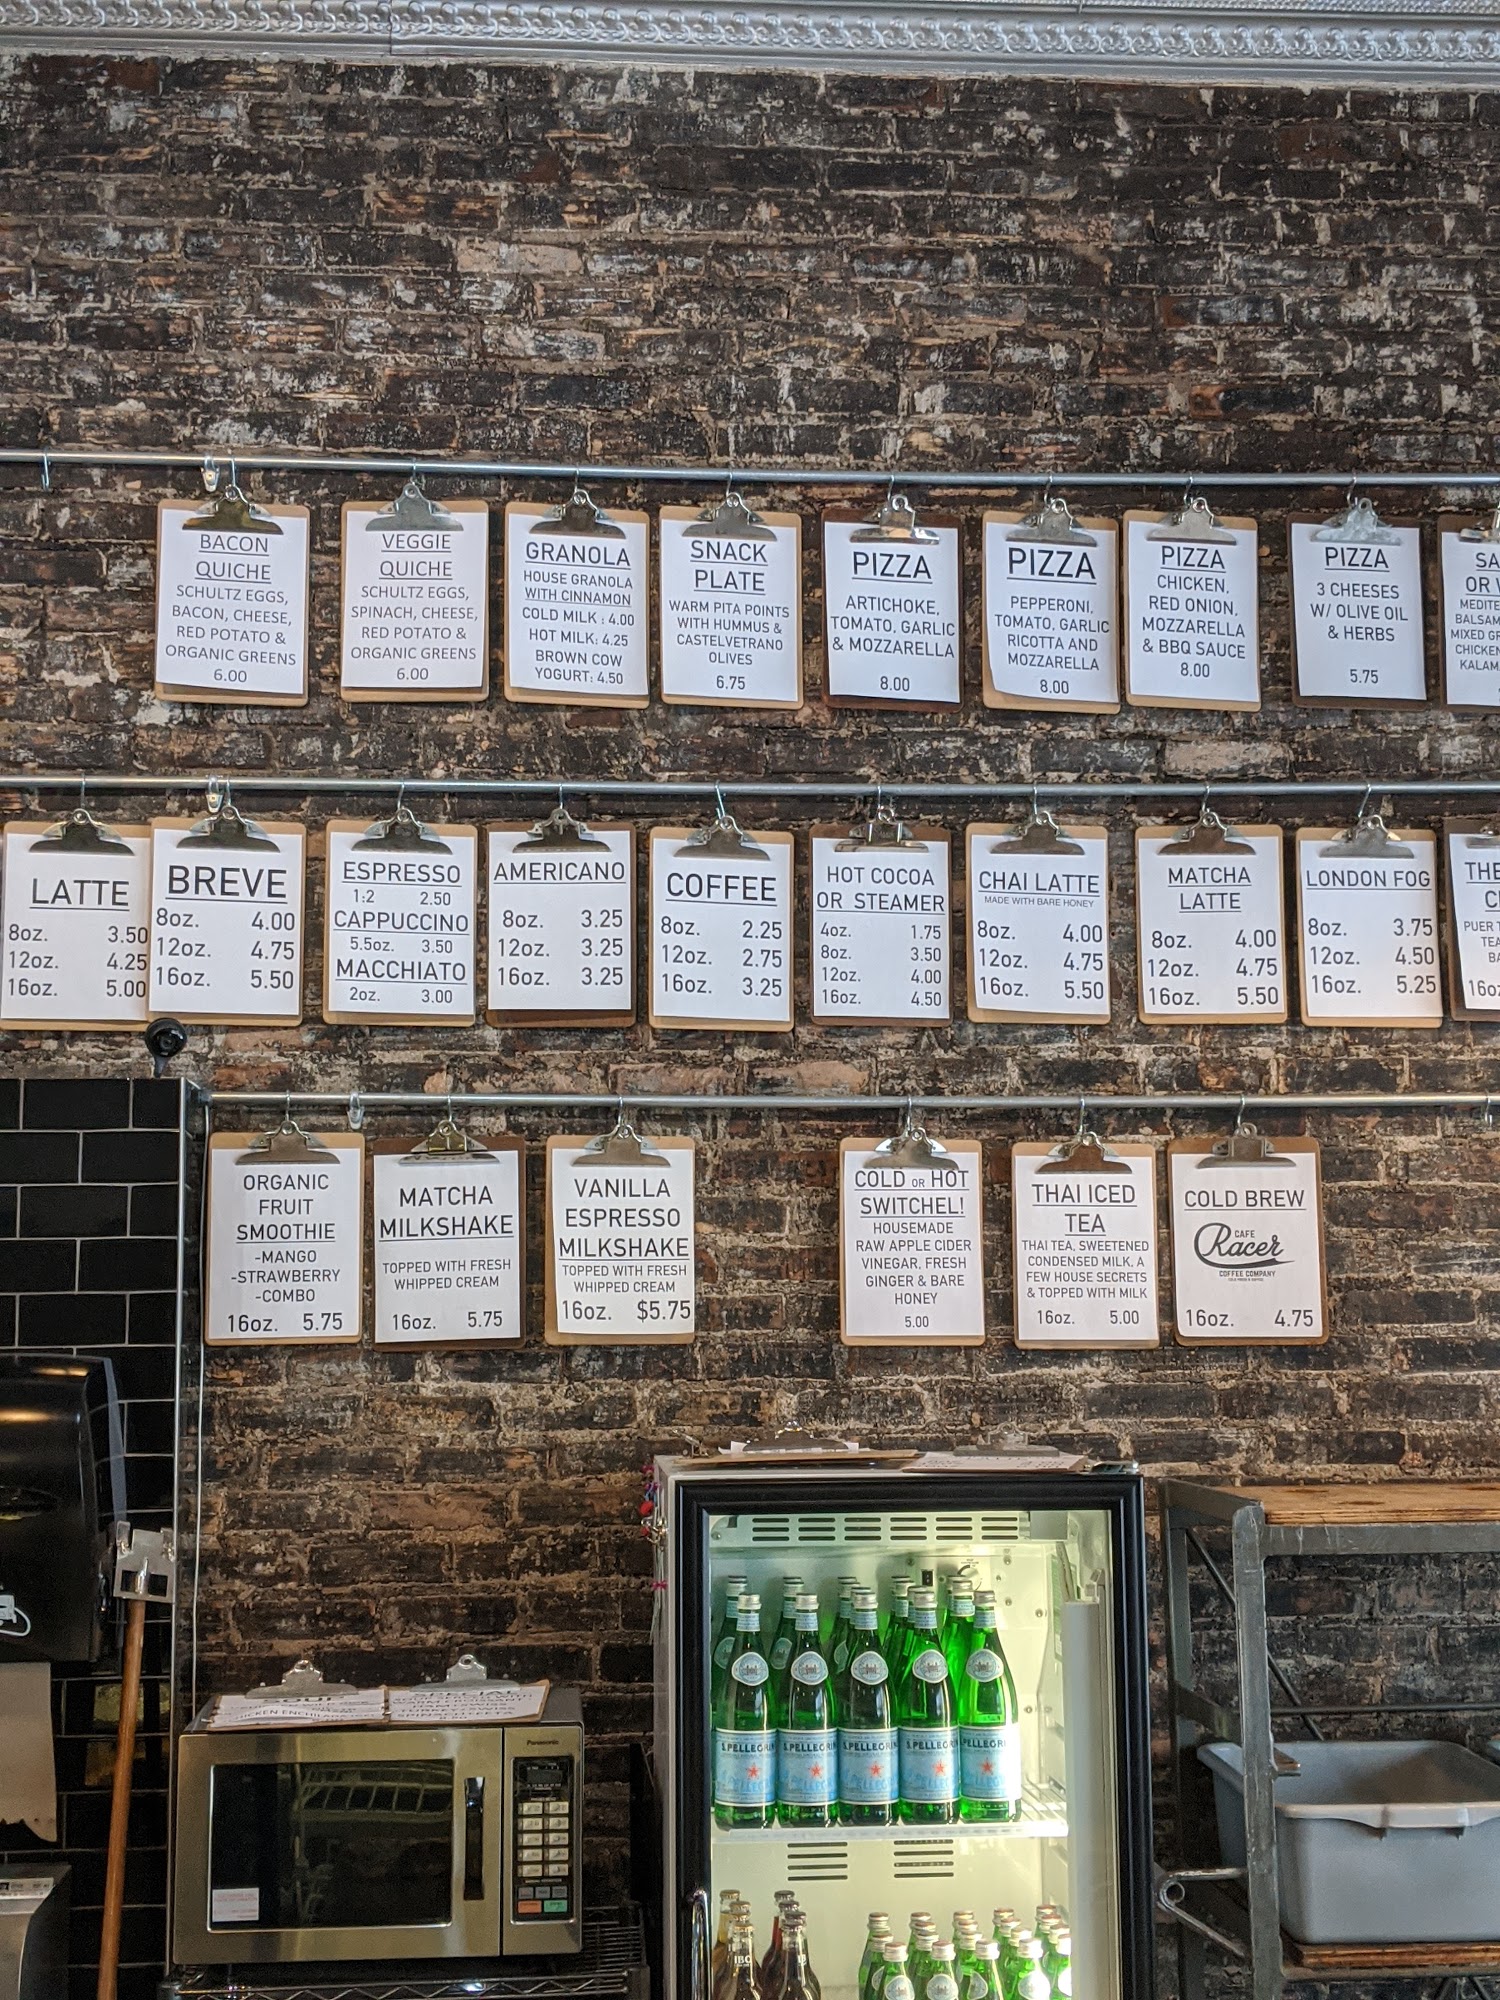 BACON
QUICHE
SCHULTZ EGGS,
BACON, CHEESE,
RED POTATO &
ORGANIC GREENS
6.00
VEGGIE
QUICHE
SCHULTZ EGGS,
SPINACH, CHEESE,
RED POTATO &
ORGANIC GREENS
6.00
GRANOLA
HOUSE GRANOLA
WITH CINNAMON
COLD MILK : 4.00
HOT MILK: 4.25
BROWN COW
YOGURT: 4.50
SNACK
PLATE
WARM PITA POINTS
WITH HUMMUS &
CASTELVETRANO
OLIVES
6.75
PIZZA
ARTICHOKE,
TOMATO, GARLIC
& MOZZARELLA
8.00
PIZZA
PEPPERONI,
TOMATO, GARLIC
RICOTTA AND
MOZZARELLA
8.00
PIZZA
CHICKEN,
RED ONION,
MOZZARELLA
& BBQ SAUCE
8.00
PIZZA
3 CHEESES
W/ OLIVE OIL
& HERBS
5.75
SA
OR W
MEDITE
BALSAM
MIXED GR
CHICKEN
KALAM
LATTE
8oz. 3.50
12oz. 4.25
16oz. 5.00
BREVE
8oz. 4.00
12oz. 4.75
16oz. 5.50
ESPRESSO
1:2 2.50
CAPPUCCINO
5.5oz. 3.50
MACCHIATO
2oz. 3.00
AMERICANO
8oz. 3.25
12oz. 3.25
16oz. 3.25
COFFEE
8oz. 2.25
12oz. 2.75
16oz. 3.25
HOT COCOA
OR STEAMER
4oz. 1.75
8oz. 3.50
12oz. 4.00
16oz. 4.50
CHAI LATTE
MADE WITH BARE HONEY
8oz. 4.00
12oz. 4.75
16oz. 5.50
MATCHA
LATTE
8oz. 4.00
12oz. 4.75
16oz. 5.50
LONDON FOG
8oz. 3.75
12oz. 4.50
16oz. 5.25
THE
C
PUER T
TEA
BA
16oz
ORGANIC
FRUIT
SMOOTHIE
-MANGO
-STRAWBERRY
-COMBO
16oz. 5.75
MATCHA
MILKSHAKE
TOPPED WITH FRESH
WHIPPED CREAM
16oz. 5.75
VANILLA
ESPRESSO
MILKSHAKE
TOPPED WITH FRESH
WHIPPED CREAM
16oz. $5.75
COLD OR HOT
SWITCHEL!
HOUSEMADE
RAW APPLE CIDER
VINEGAR, FRESH
GINGER & BARE
HONEY
5.00
THAI ICED
TEA
THAI TEA, SWEETENED
CONDENSED MILK, A
FEW HOUSE SECRETS
& TOPPED WITH MILK
16oz. 5.00
COLD BREW
CAFE
Racer
COFFEE COMPANY
16oz. 4.75
SOUP
SPECIAL
Panasonic
S.PELLEGRIN
S.PELLEGRI
S.PELLEGRI
S.PELLEGRI
PELLEGRINO
IBC